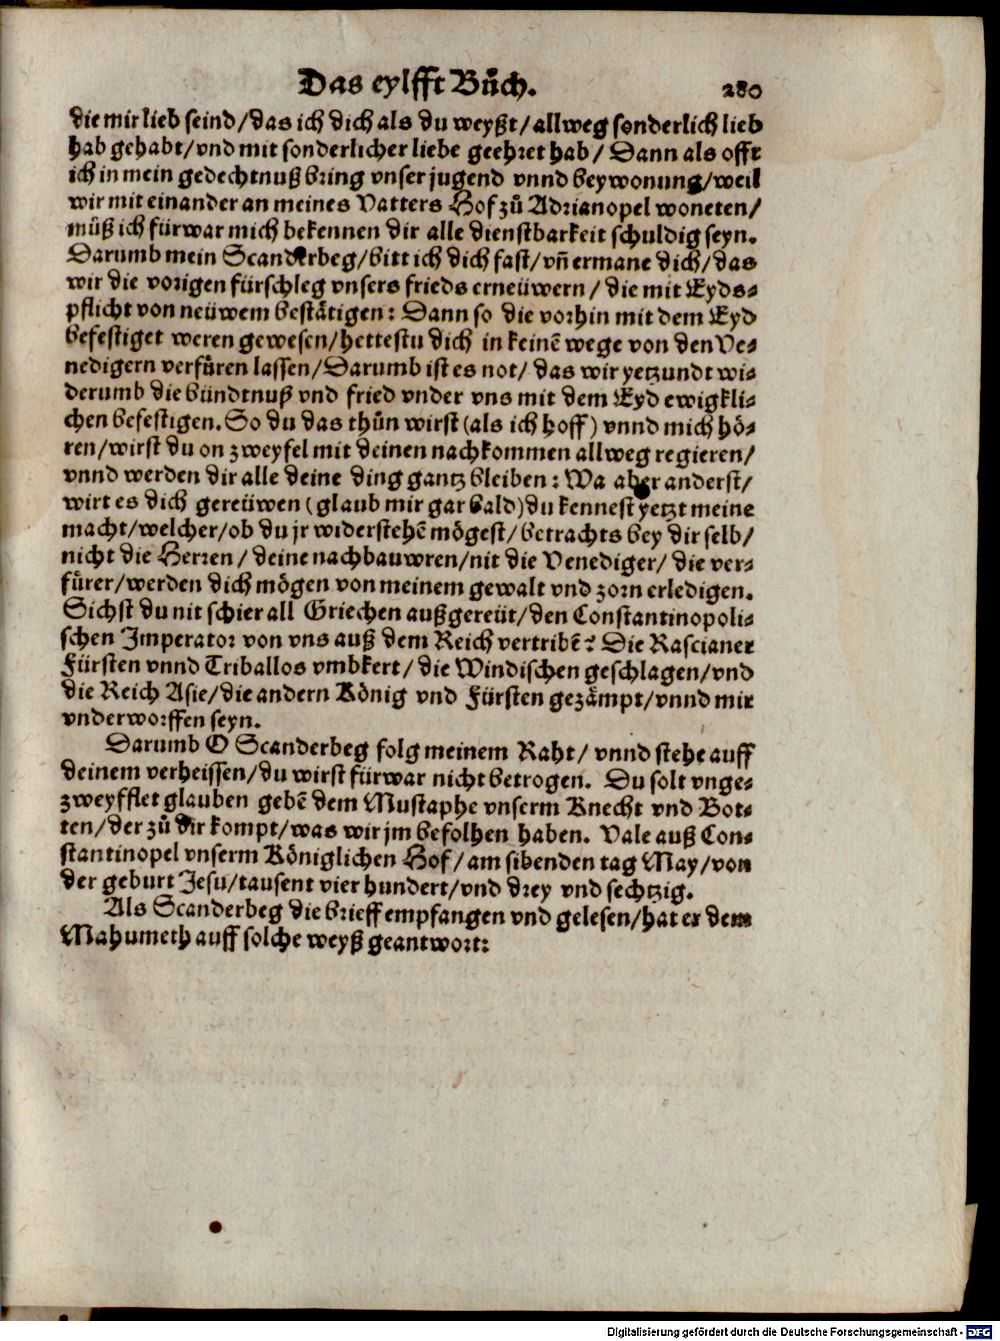 Das eylfft Bůch. 280
die mir lieb seind/das ich dich als du weyßt/allweg sonderlich lieb
hab gehabt/vnd mit sonderlicher liebe geehret hab/ Dann als offt
ich in mein gedechtnuß bring vnser jugend vnnd beywonung/weil
wir mit einander an meines Vatters Hof zů Adrianopel woneten/
můß ich fürwar mich bekennen dir alle dienstbarkeit schuldig seyn.
Darumb mein Scanderbeg/bitt ich dich fast/vñ ermane dich/das
wir die vorigen fürschleg vnsers frieds erneüwern/die mit Eyds-
pflicht von neüwem bestätigen: Dann so die vorhin mit dem Eyd
befestiget weren gewesen/hettestu dich in keinē wege von den Ve-
nedigern verfůren lassen/Darumb ist es not/das wir yetzundt wi-
derumb die bündtnuß vnd fried vnder vns mit dem Eyd ewigkli-
chen befestigen. So du das thůn wirst (als ich hoff) vnnd mich hö-
ren/wirst du on zweyfel mit deinen nachkommen allweg regieren/
vnnd werden dir alle deine ding gantz bleiben: Wa aber anderst/
wirt es dich gereüwen (glaub mir gar bald) du kennest yetzt meine
macht/welcher/ob du jr widerstehē mögest/betrachts bey dir selb/
nicht die Herren/deine nachbauwren/nit die Venediger/die ver-
fürer/werden dich mögen von meinem gewalt vnd zorn erledigen.
Sichst du nit schier all Griechen außgereüt/den Constantinopoli-
schen Imperator von vns auß dem Reich vertribē? Die Rascianer
Fürsten vnnd Triballos vmbkert/die Windischen geschlagen/vnd
die Reich Asie/die andern König vnd Fürsten gezämpt/vnnd mir
vnderworffen seyn.
Darumb O Scanderbeg folg meinem Raht/vnnd stehe auff
deinem verheissen/du wirst fürwar nicht betrogen. Du solt vnge-
zweyfflet glauben gebē dem Mustaphe vnserm Knecht vnd Bot-
ten/der zů dir kompt/was wir jm befolhen haben. Vale auß Con-
stantinopel vnserm Königlichen Hof/am sibenden tag May/von
der geburt Jesu/tausent vier hundert/vnd drey vnd sechtzig.
Als Scanderbeg die brieff empfangen vnd gelesen/hat er dem
Mahumeth auff solche weyß geantwort:
Digitalisierung gefördert durch die Deutsche Forschungsgemeinschaft - DFG